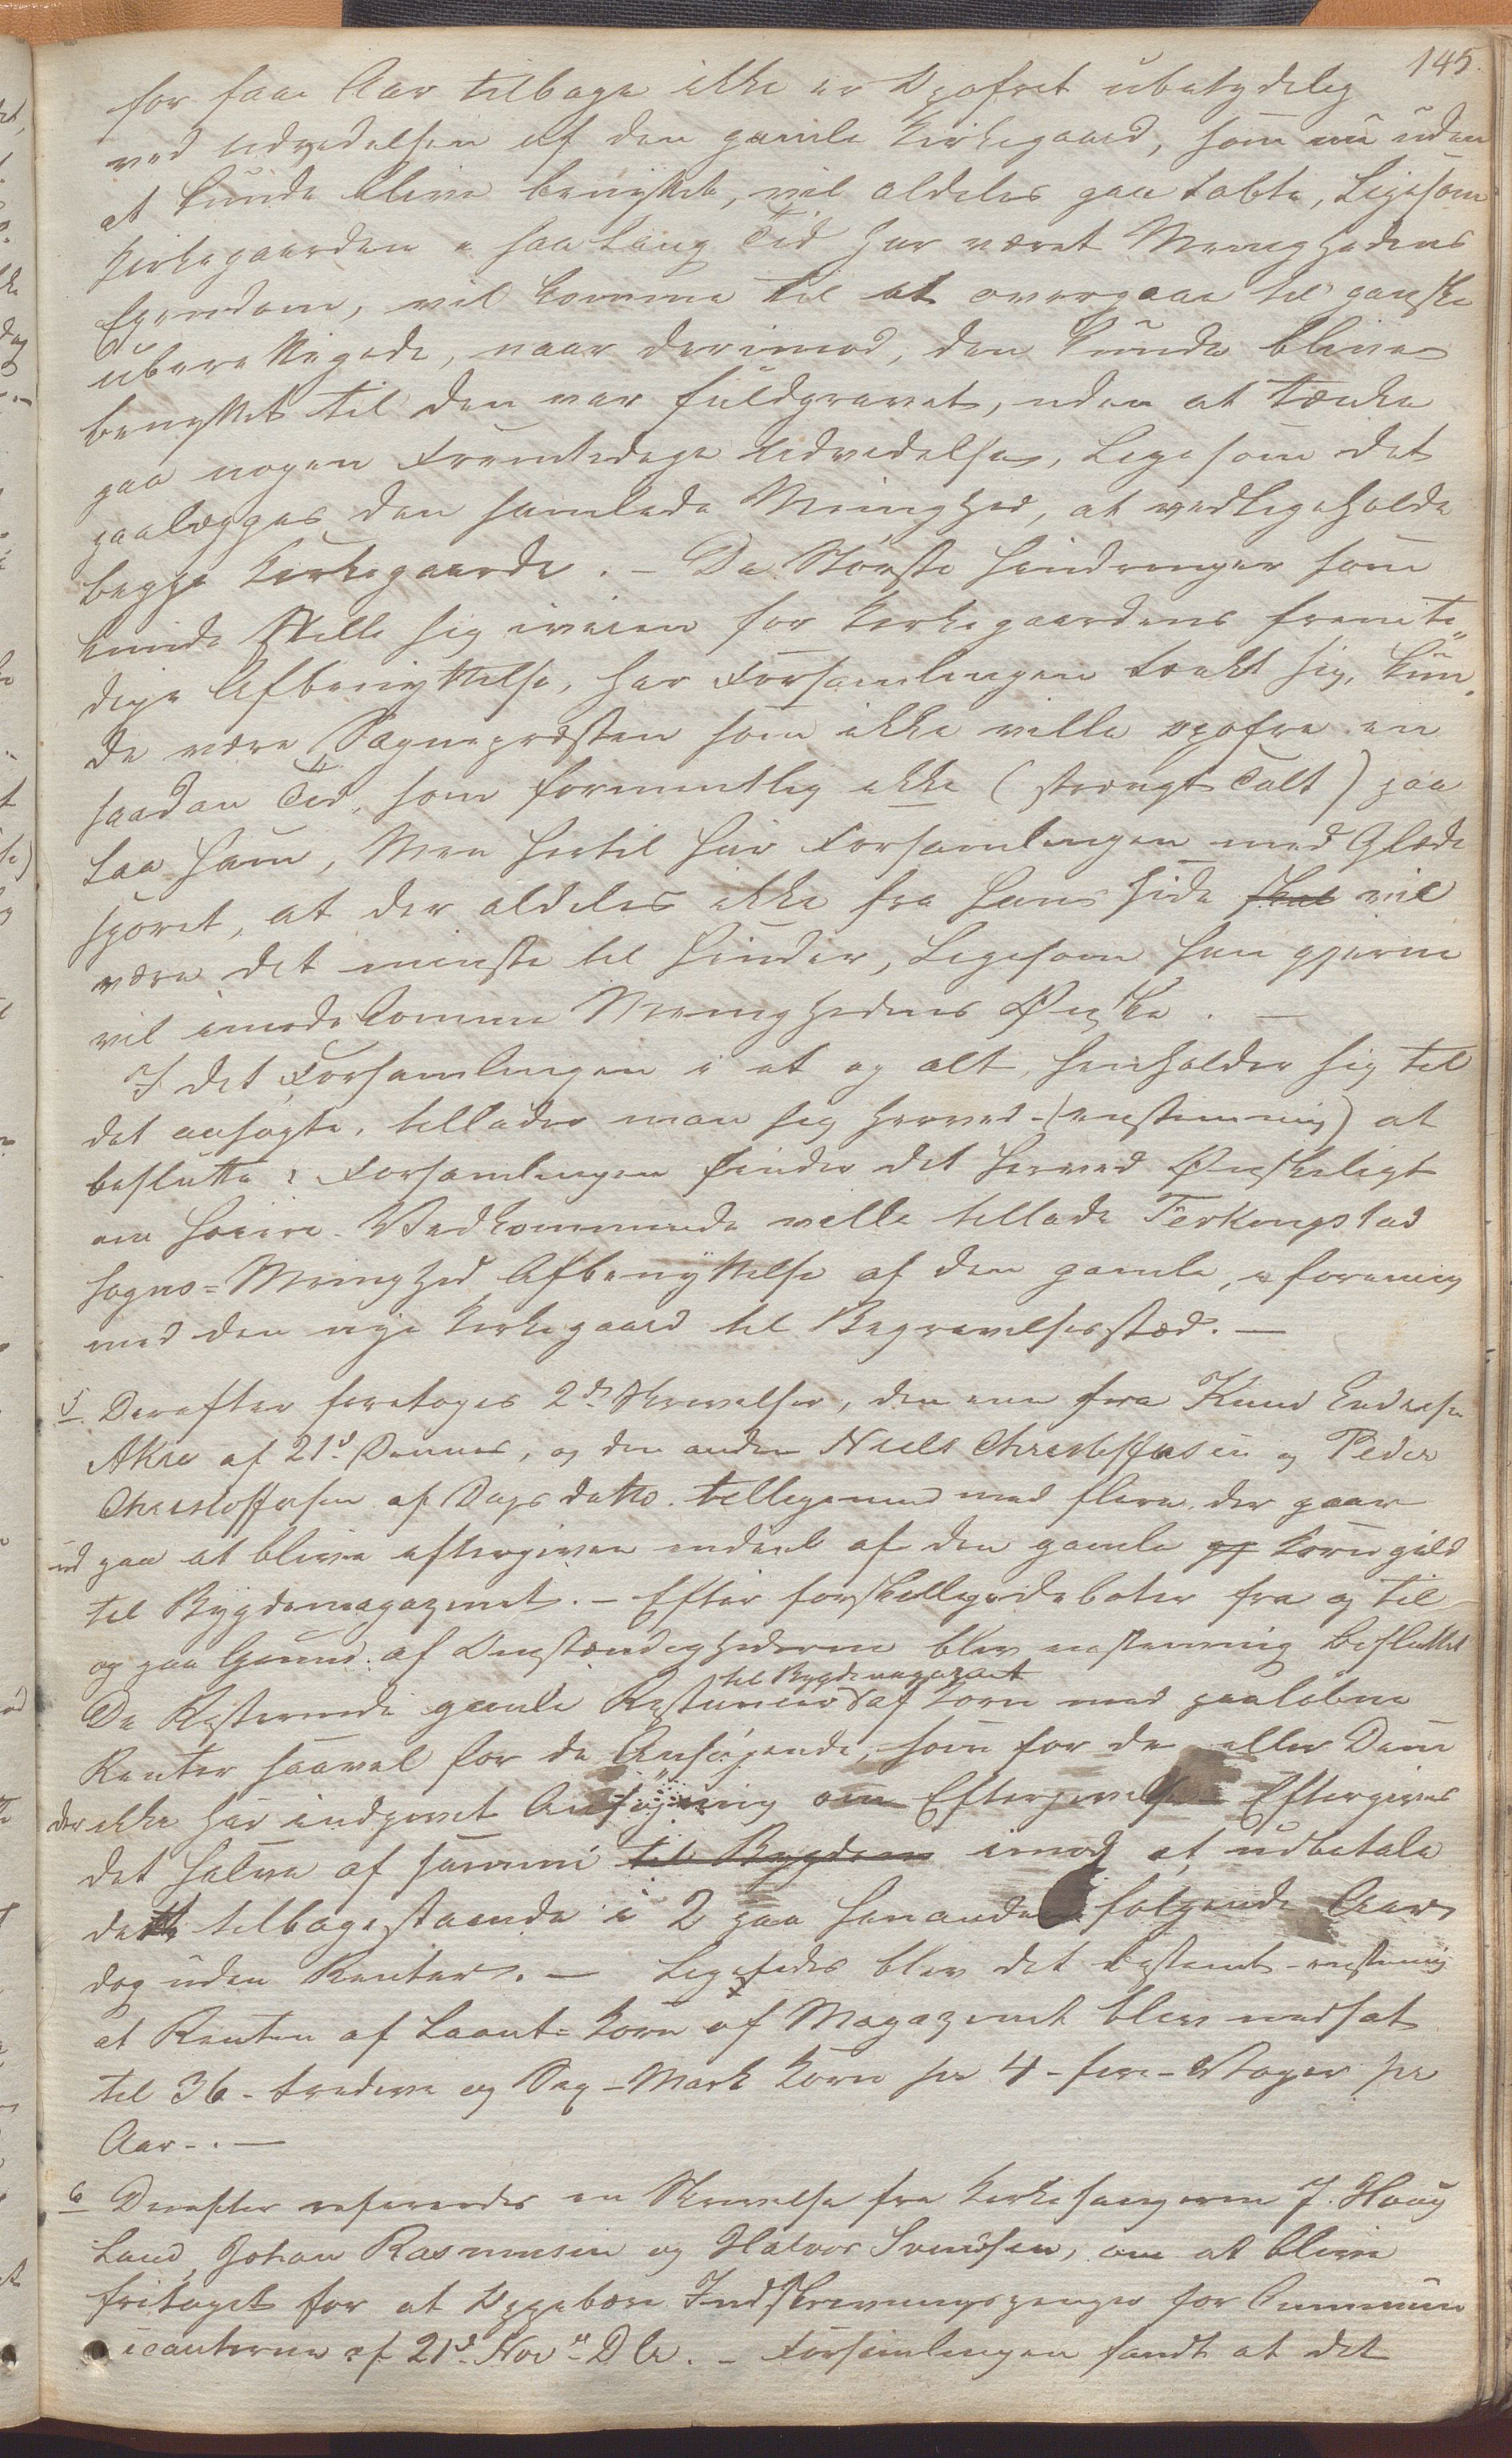 145.
for faae Aar tilbage ikke er Opofret ubetydelig
ved Udvidelsen af den gamle Kirkegaard, som nu uden
at kunde blive benyttet, vil aldeles gaa tabte, Ligesom
Kirkegaarden i saa lang Tid har været Menighedens
Eyendom, vil komme til at overgaae til ganske
uberettigede, naar derimod, den kunde blive
benyttet til den var fuldgravet, uden at tænke
paa nogen Fremtidige Udvidelse, Lige som det
paalægges den samlede Menighed, at vedligeholde
begge Kirkegaarde. – De Største Hindringer som
kunde stille sig iveien for Kirkegaardens fremti„
dige Afbenyttelse, har Forsamlingen tænkt sig, kun„
de være Sognepræsten som ikke ville opofre en
saadan Tid, som formentlig ikke (strængt Talt) paa
Laa ham, Men hertil har Forsamlingen med Glæde
sporet, at der aldeles ikke fra Hans side skal vil
være det minste til Hinder, Ligesom han gjerne
vil imødekomme Menighedens Ønske. –
I det Forsamlingen i et og alt, henholder sig til
det ansøgte, tillader man sig herved – (enstemmig) at
beslutte: Forsamlingen finder det herved Ønskeligt
om høiere Vedkommende ville tillade Ferkingstad
Sogns=Menighed Afbenyttelse af den gamle, i forening
med den nye Kirkegaard til Begravelsesstæd. –
5 Derefter foretoges 2de Skrivelser, den ene fra Knud Endresen
Akre af 21d Dennes, og den anden Niels Christoffersen og Peder
Christoffersen af Dags datto tilligemed med flere der gaar
ud paa at blive eftergiven endeel af den gamle gj Korngjæld
til Bygdemagazinet. – Efter forskellige debater fra og til
og paa Grund af Omstændighederne blev enstemmig besluttet
til Bygdemagazinet
De Resterende gamle Restancer af Korn med paaløbne
Renter saavel for de Ansøgende, som for de eller Dem
der ikke har indgivet Ansøgning om Eftergivelse Eftergives
det halve af samme til Bygdem imod at udbetale
dette tilbagestaaende i 2 paa hinanden følgende Aar
dog uden Renter. – Ligeledes blev det bestemt – enstemmig
at Renten af Laant=Korn af Magazinet blev nedsat
til 36 – tredive og Sex – Mark Korn pr 4 – fire – Voger pr
Aar –. –
6 Derefter refereredes en Skrivelse fra Kirkesangerne J. Houg
Land, Johan Rasmusen og Halvor Svendsen, om at blive
fritaget for at Oppebære Indskrivningspenge for Commun
icanterne af 21d Novr D Ar. – Forsamlingen fandt at det